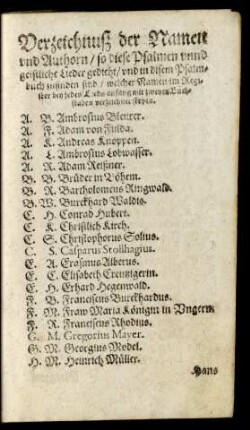 Verzeichnuß der Namen
vnd Authorn / so diese Psalmen vnnd
geistliche Lieder gedicht / vnd in disem Psalm-
buch zufinden sind / welcher Namen im Regi-
ster bey jedes Lieds anfang mit zweyen Buch-
staben verzeichnet stehen.
A. B. Ambrosius Blaurer.
A. F. Adam von Fulda.
A. K. Andreas Knöppen.
A. L. Ambrosius Lobwasser.
A. R. Adam Reißner.
B. B. Brüder in Böhem.
B. R. Bartholomeus Ringwald.
B. W. Burckhard Waldis.
C. H. Conrad Huber.
C. K. Christlich Kirch.
C. S. Christophorus Solius.
C. S. Casparus Stollhagius.
E. A. Erasmus Alberus.
E. C. Elisabeth Creutzigerin.
E. H. Erhard Hegenwald.
F. B. Franciscus Burckhardus.
F. M. Fraw Maria Königin in Vngern.
F. R. Franciscus Rhodius.
G. M. Gregorius Mayer.
G. M. Georgius Model.
H. M. Heinrich Müller.
Hans